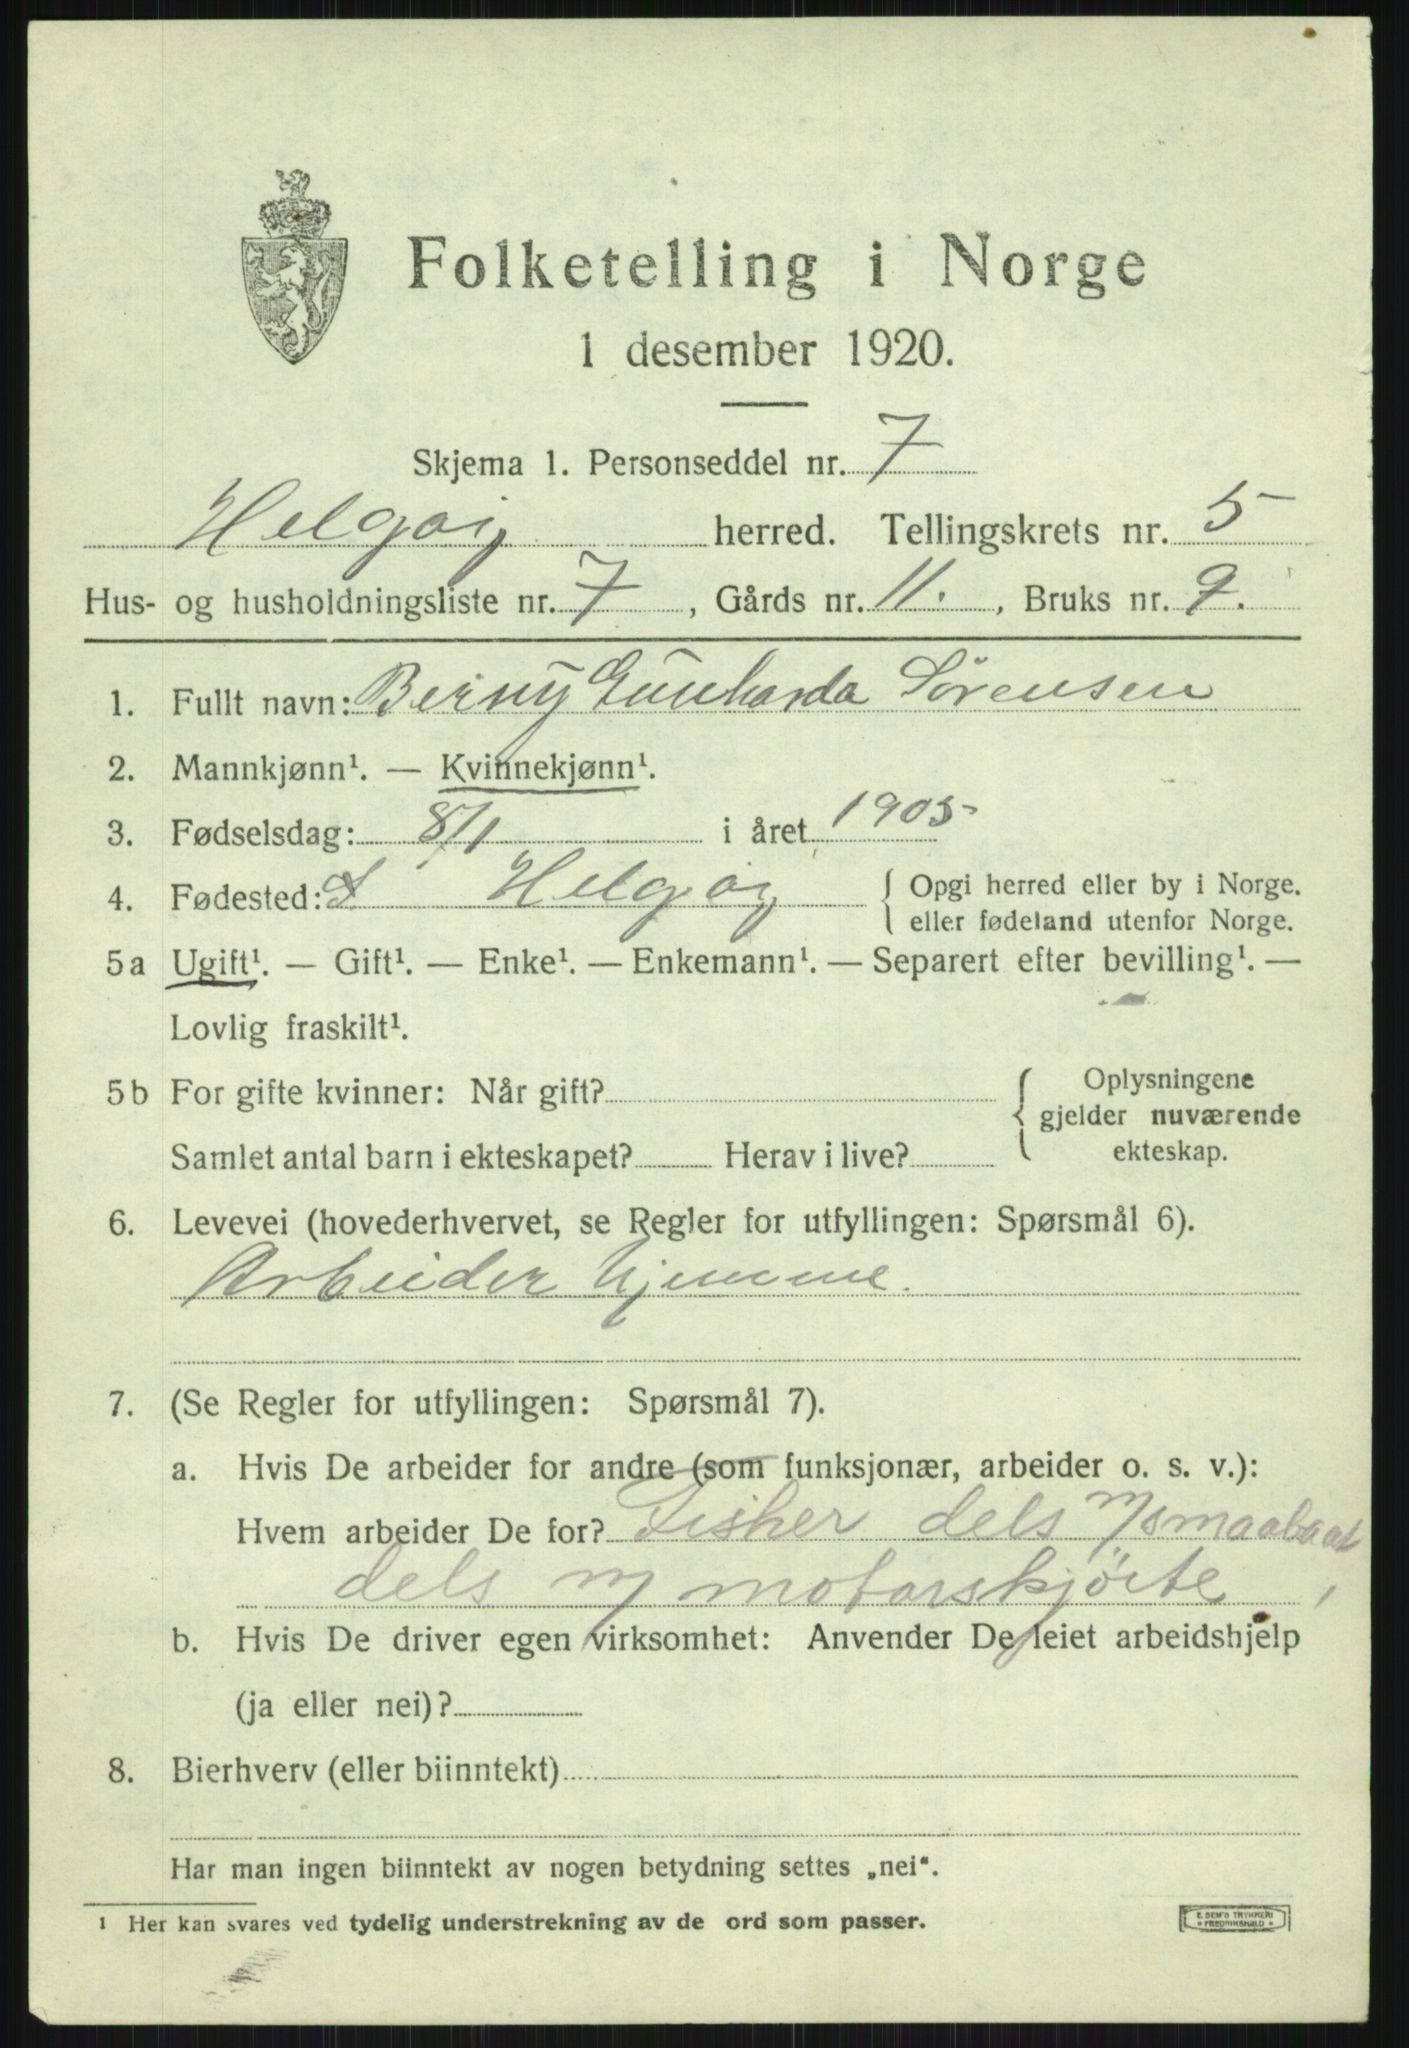 Folketelling i Norge
1 desember 1920.
Skjema 1. Personseddel nr. 7
Helgøy herred. Tellingskrets nr. 5
Hus- og husholdningsliste nr. 7, Gårds nr. 11., Bruks nr. 9.
1. Fullt navn: Berny Gunharda Sørensen
2. Mannkjønn¹. — Kvinnekjønn¹.
3. Fødselsdag: 8/1 i året 1905
4. Fødested: Helgøy { Opgi herred eller by i Norge.
eller fødeland utenfor Norge.
5a Ugift¹. — Gift¹. — Enke¹. — Enkemann¹. — Separert efter bevilling¹. —
Lovlig fraskilt¹.
5b For gifte kvinner: Når gift?
Oplysningene
gjelder nuværende
ekteskap.
Samlet antal barn i ekteskapet? Herav i live?
6. Levevei (hovederhvervet, se Regler for utfyllingen: Spørsmål 6).
Arbeider hjemme.
7. (Se Regler for utfyllingen: Spørsmål 7).
a. Hvis De arbeider for andre (som funksjonær, arbeider o. s. v.):
Hvem arbeider De for? Fisker dels m/smaabaat
dels m/motorskjöite
b. Hvis De driver egen virksomhet: Anvender De leiet arbeidshjelp
(ja eller nei)?
8. Bierhverv (eller biinntekt)
Har man ingen biinntekt av nogen betydning settes „nei“.
1 Her kan svares ved tydelig understrekning av de ord som passer.
E. SEM'S TRYKKERI
FREDRIKSHALD